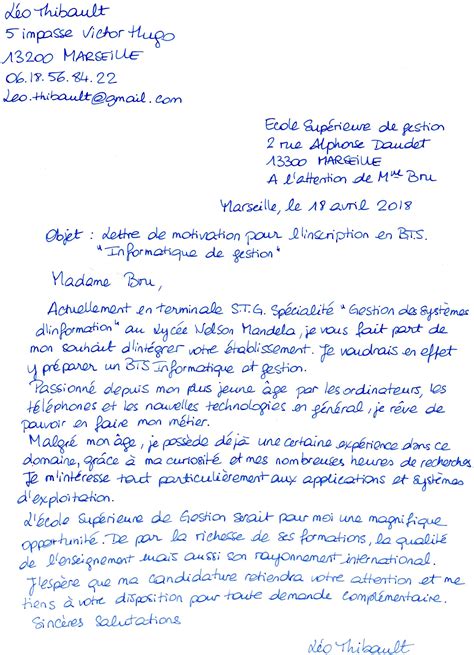 Léo Thibault
5 impasse Victor Hugo
13200 MARSEILLE
06.18.56.84.22
Leo.thibault@gmail.com
Ecole Supérieure de gestion
2 rue Alphonse Daudet
13300 MARSEILLE
A l'attention de Mme Bru
Marseille, le 18 avril 2018
Objet : Lettre de motivation pour l'inscription en BTS.
"Informatique de gestion"
Madame Bru,
Actuellement en terminale S.T.G. Spécialité "Gestion des Systèmes
d'information" au Lycée Nelson Mandela, je vous fait part de
mon souhait d'intégrer votre établissement. Je voudrais en effet
y préparer un BTS Informatique et gestion.
Passionné depuis mon plus jeune âge par les ordinateurs, les
téléphones et les nouvelles technologies en général, je rêve de
pouvoir en faire mon métier.
Malgré mon âge, je possède déjà une certaine expérience dans ce
domaine, grâce à ma curiosité et mes nombreuses heures de recherches
Je m'intéresse tout particulièrement aux applications et systèmes
d'exploitation.
L'école Supérieure de Gestion serait pour moi une magnifique
opportunité. De par la richesse de ses formations, la qualité
de l'enseignement mais aussi son rayonnement international.
J'espère que ma candidature retiendra votre attention et me
tiens à votre disposition pour toute demande complémentaire.
Sincères Salutations
Léo Thibault